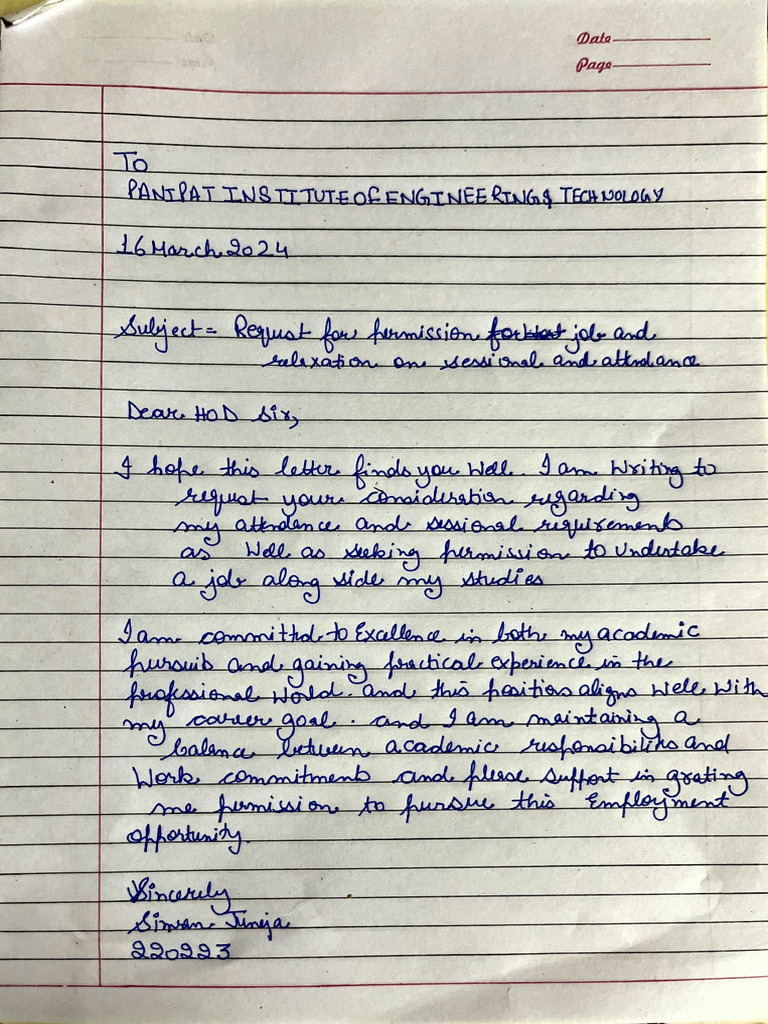 Date
Page
To
PANIPAT INSTITUTE OF ENGINEERING & TECHNOLOGY
16 March 2024
Subject = Request for permission job and
relaxation on sessional and attendance
Dear HOD Sir,
I hope this letter finds you well. I am writing to
request your consideration regarding
my attendence and sessional requirements
as well as seeking permission to undertake
a job along side my studies
I am committed to Excellence in both my academic
pursuits and gaining practical experience in the
professional world. and this position aligns well with
my career goal. and I am maintaining a
balance between academic responsibilities and
work commitments and please support in grating
me permission to pursue this Employment
opportunity.
Sincerely
Simran Juneja
220223